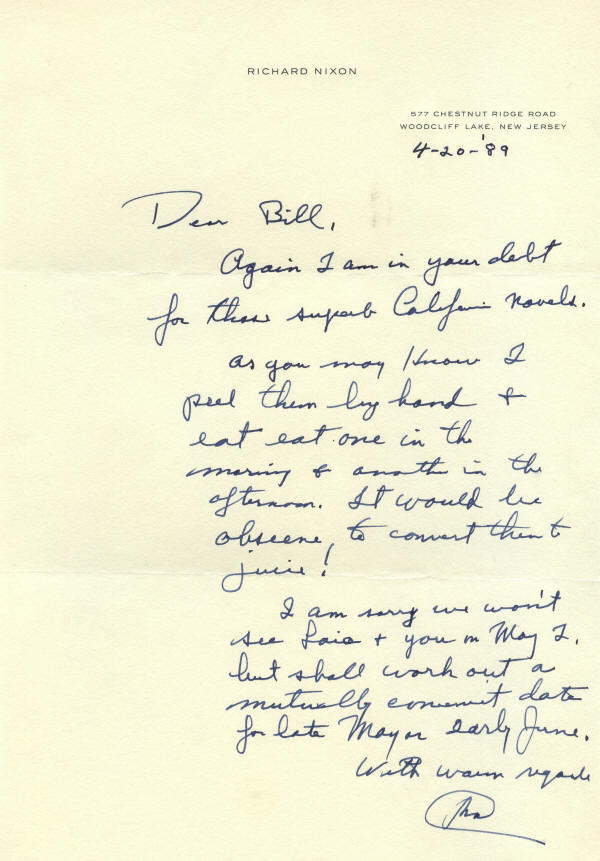 RICHARD NIXON
577 CHESTNUT RIDGE ROAD
WOODCLIFF LAKE, NEW JERSEY
4-20-'89
Dear Bill,
Again I am in your debt
for those superb California navels.
As you may know I
peel them by hand &
eat eat one in the
morning & another in the
afternoon. It would be
obscene, to convert them to
juice!
I am sorry we won't
see & you on May 2,
but shall work out a
mutually convenient date
for late May or early June.
With warm regards
RN